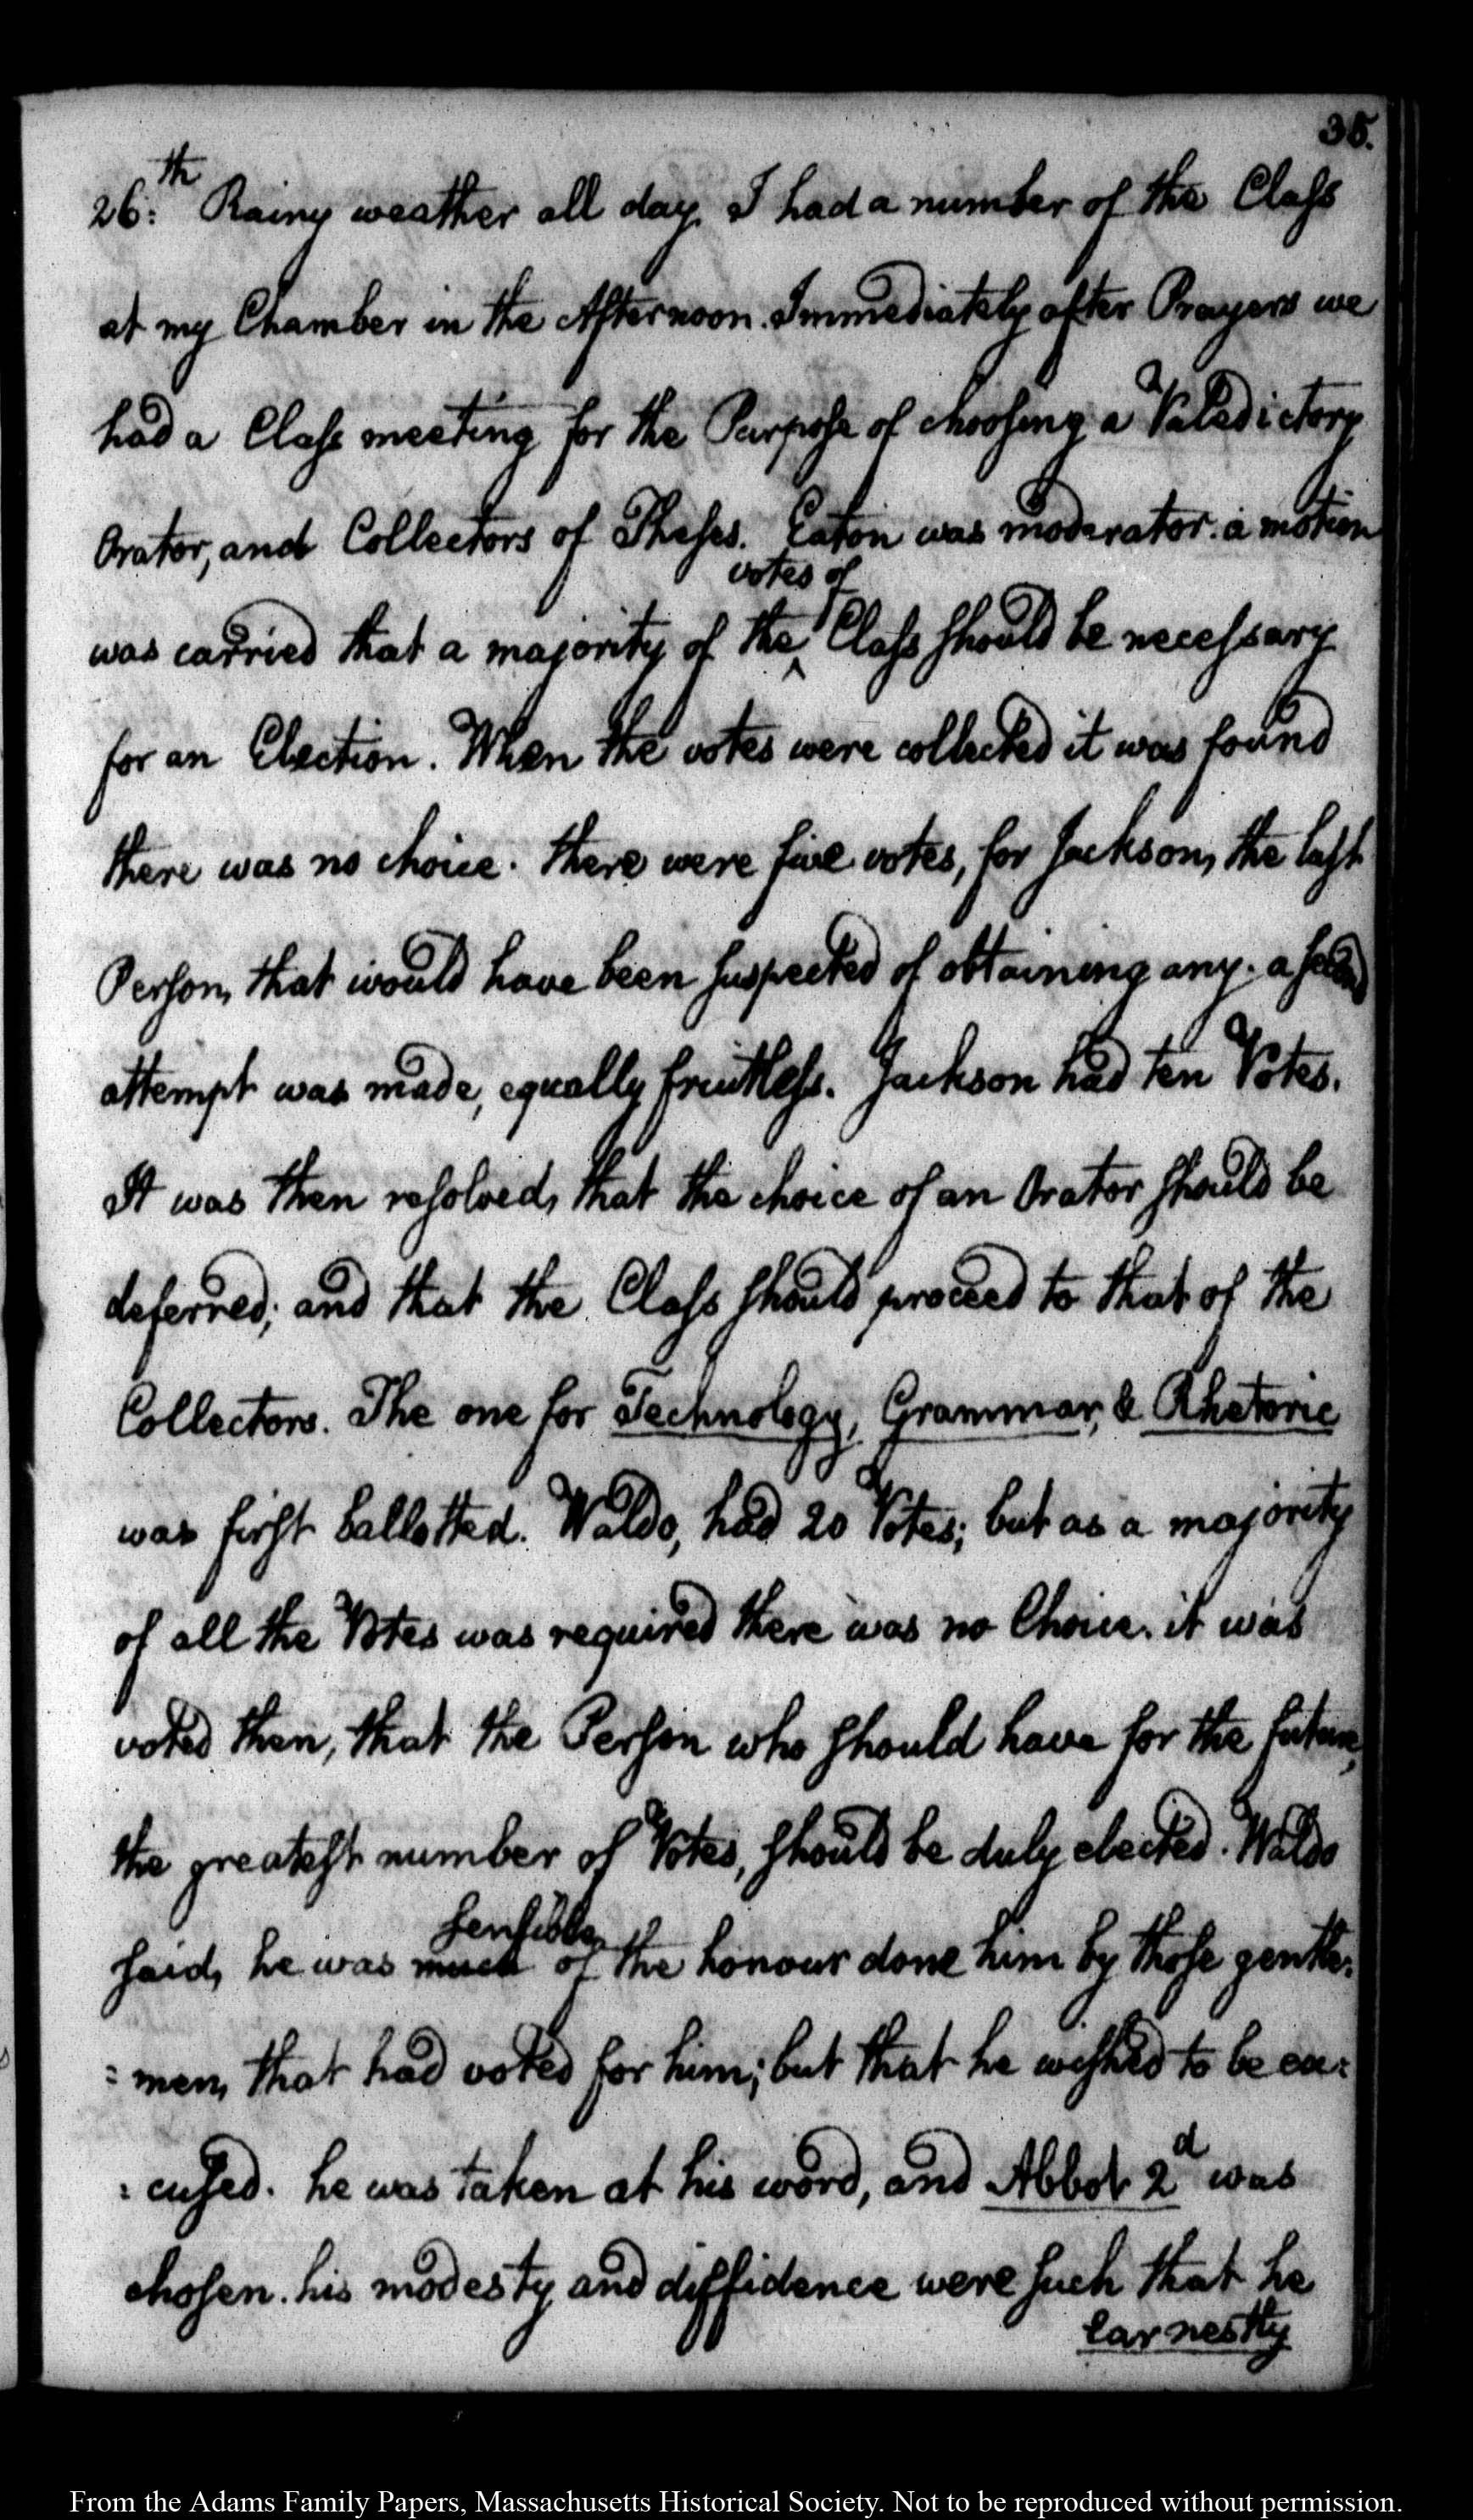 35.
26:th Rainy weather all day. I had a number of the Claſs
at my Chamber in the Afternoon. Immediately after Prayers we
had a Claſs meeting for the Purpoſe of chooſing a Valedictory
Orator, and Collectors of Theſes. Eaton was moderator. a motion
votes of
was carried that a majority of the ‸ Claſs ſhould be neceſsary
for an Election. When the votes were collected it was found
there was no choice. there were five votes, for Jackson, the laſt
Perſon, that would have been ſuspected of obtaining any. a ſecond
attempt was made, equally fruitleſs. Jackson had ten Votes.
It was then reſolved, that the choice of an Orator ſhould be
deferred; and that the Claſs ſhould proceed to that of the
Collectors. The one for Technology, Grammar, & Rhetoric
was firſt ballotted. Waldo, had 20 Votes; but as a majority
of all the Votes was required there was no Choice. it was
voted then, that the Perſon who ſhould have for the future,
the greateſt number of Votes, ſhould be duly elected. Waldo
ſenſible
ſaid, he was much of the honour done him by thoſe gentle:
: men, that had voted for him; but that he wiſhed to be ex:
: cuſed. he was taken at his word, and Abbot 2d was
choſen. his modesty and diffidence were ſuch that he
earnestly
From the Adams Family Papers, Massachusetts Historical Society. Not to be reproduced without permission.